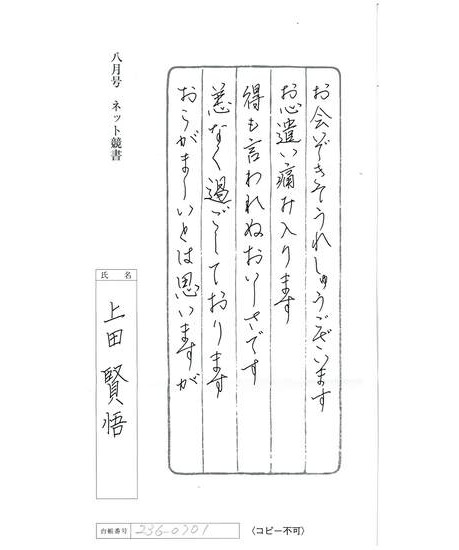 お会いできてうれしゅうございます
お心遣い痛み入ります
得も言われぬおいしさです
恙なく過ごしております
おこがましいとは思いますが
八月号 ネット競書
氏名
上田賢悟
台帳番号 236-0701
〈コピー不可〉